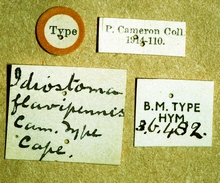 Type
P. Cameron Coll.
1914-110.
Idiostoma
flavipennis
Cam. Type
Cape.
B.M. TYPE
HYM
3.b.482.